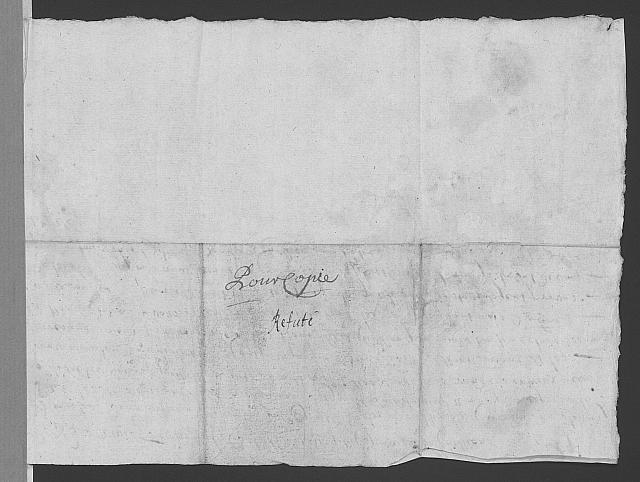 Pour Copie
Refuté